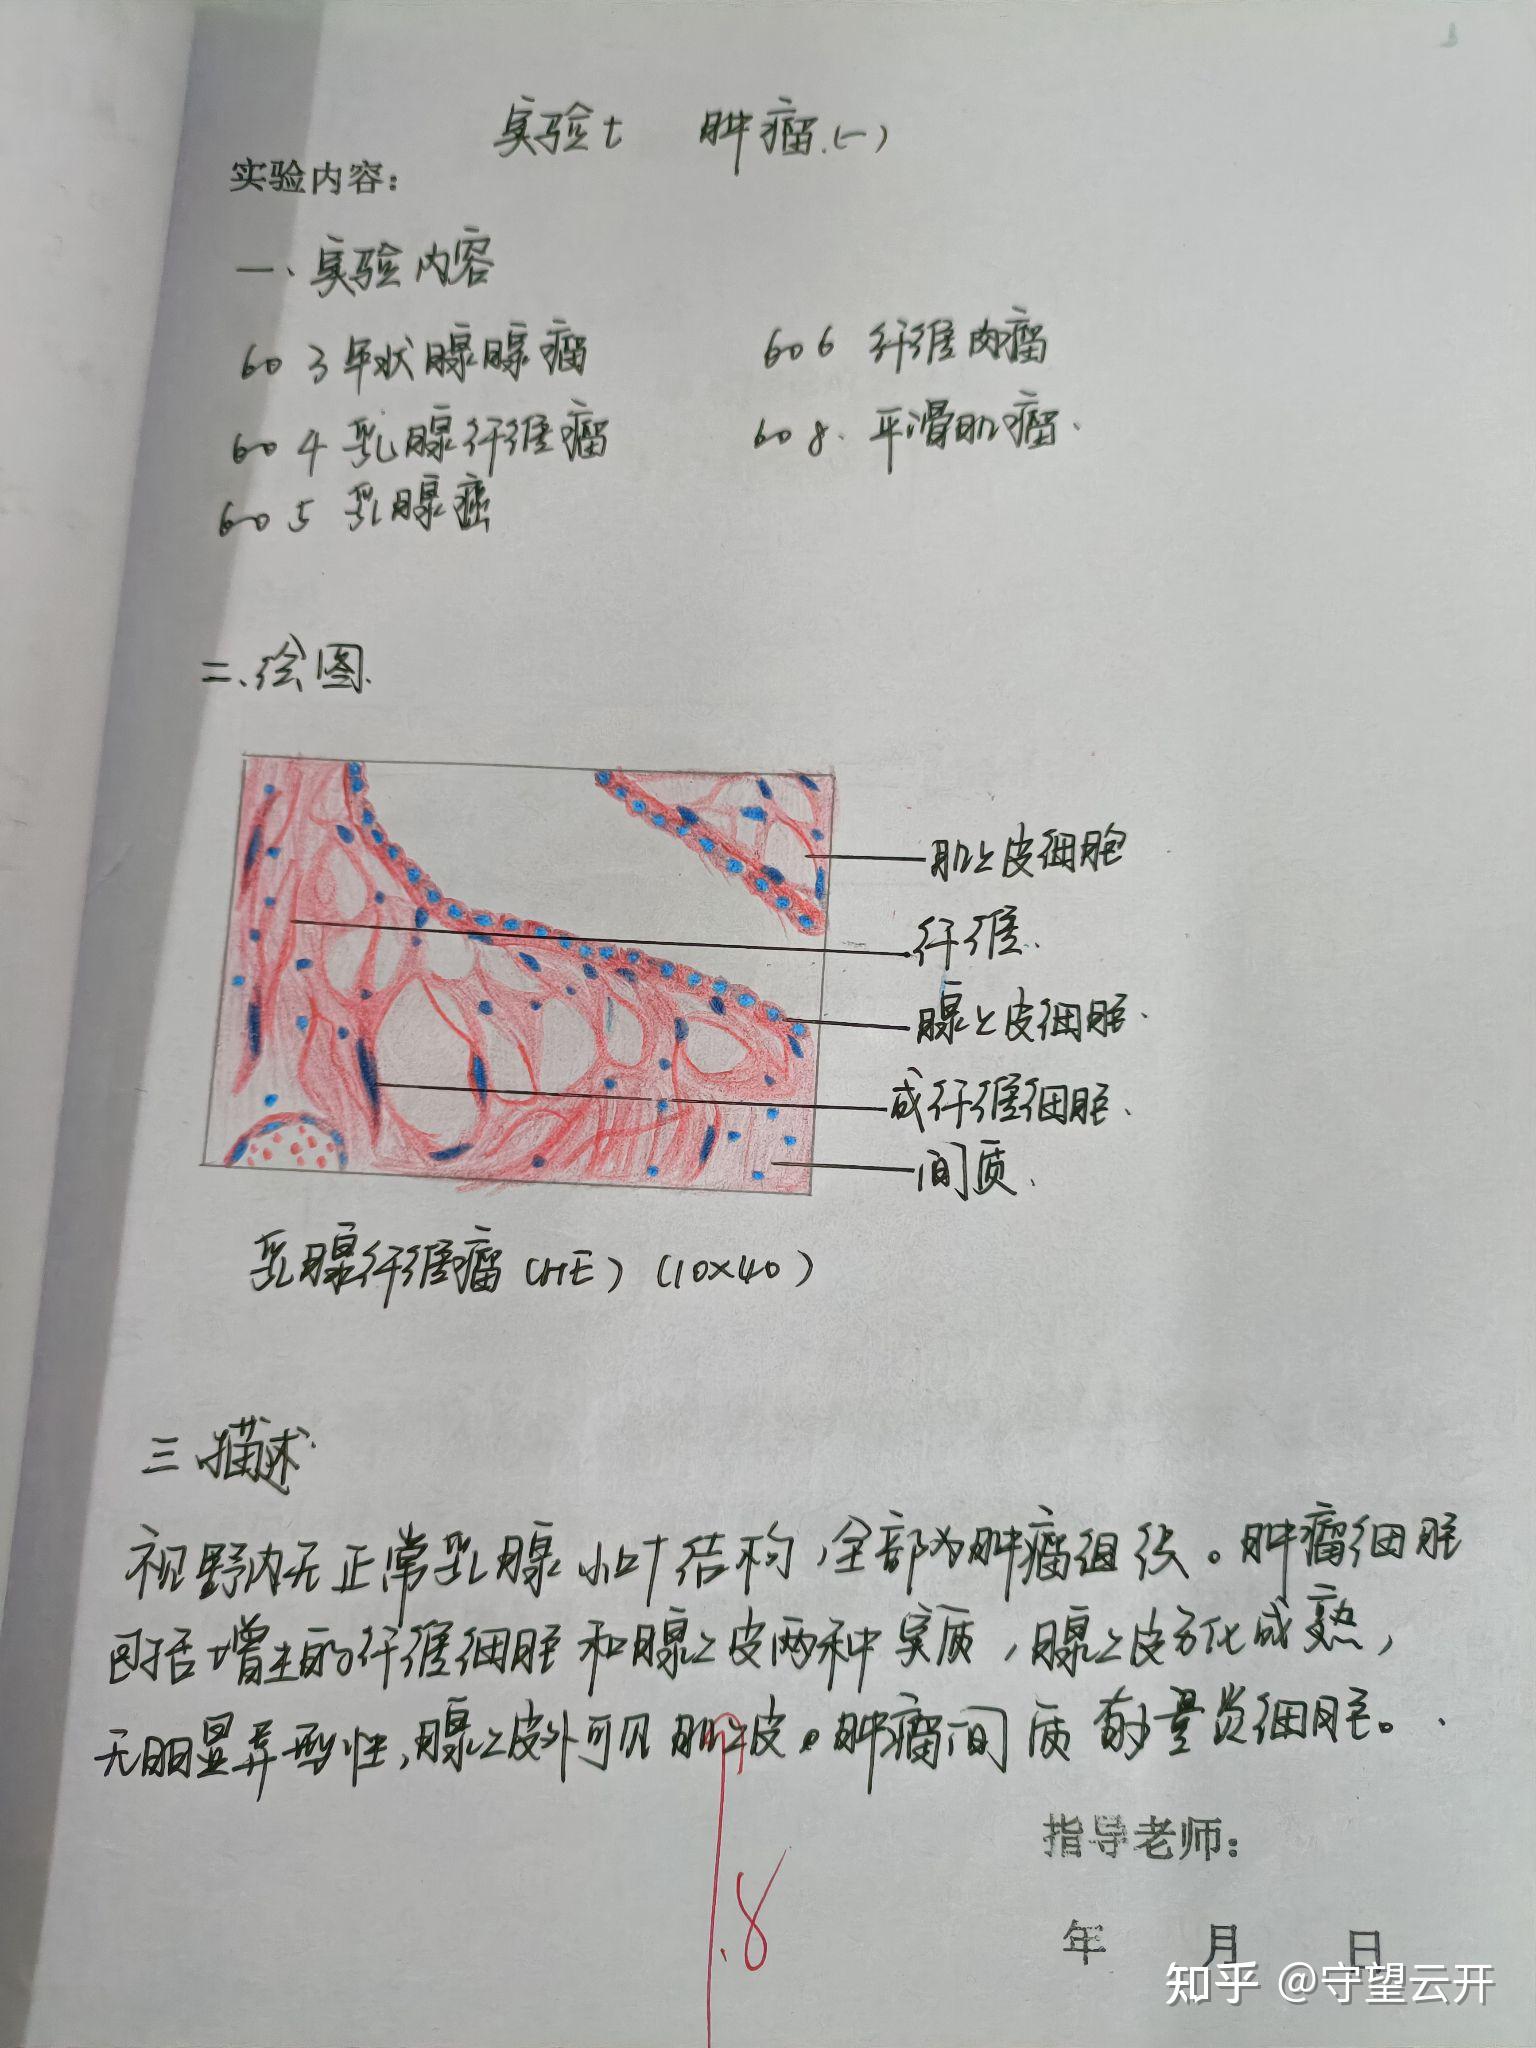 实验七 肿瘤(一)
实验内容:
一、实验内容
603 甲状腺腺瘤 606 纤维肉瘤
604 乳腺纤维瘤 608. 平滑肌瘤.
605 乳腺癌
二、绘图.
肌上皮细胞
纤维.
腺上皮细胞.
成纤维细胞.
间质.
乳腺纤维瘤(HE)(10×40)
三 描述.
视野内无正常乳腺小叶结构,全部为肿瘤组织。肿瘤细胞
包括增生的纤维细胞和腺上皮两种实质,腺上皮分化成熟,
无明显异型性,腺上皮外可见肌上皮。肿瘤间质有少量炎细胞。
指导老师:
8
年 月 日
知乎 @守望云开